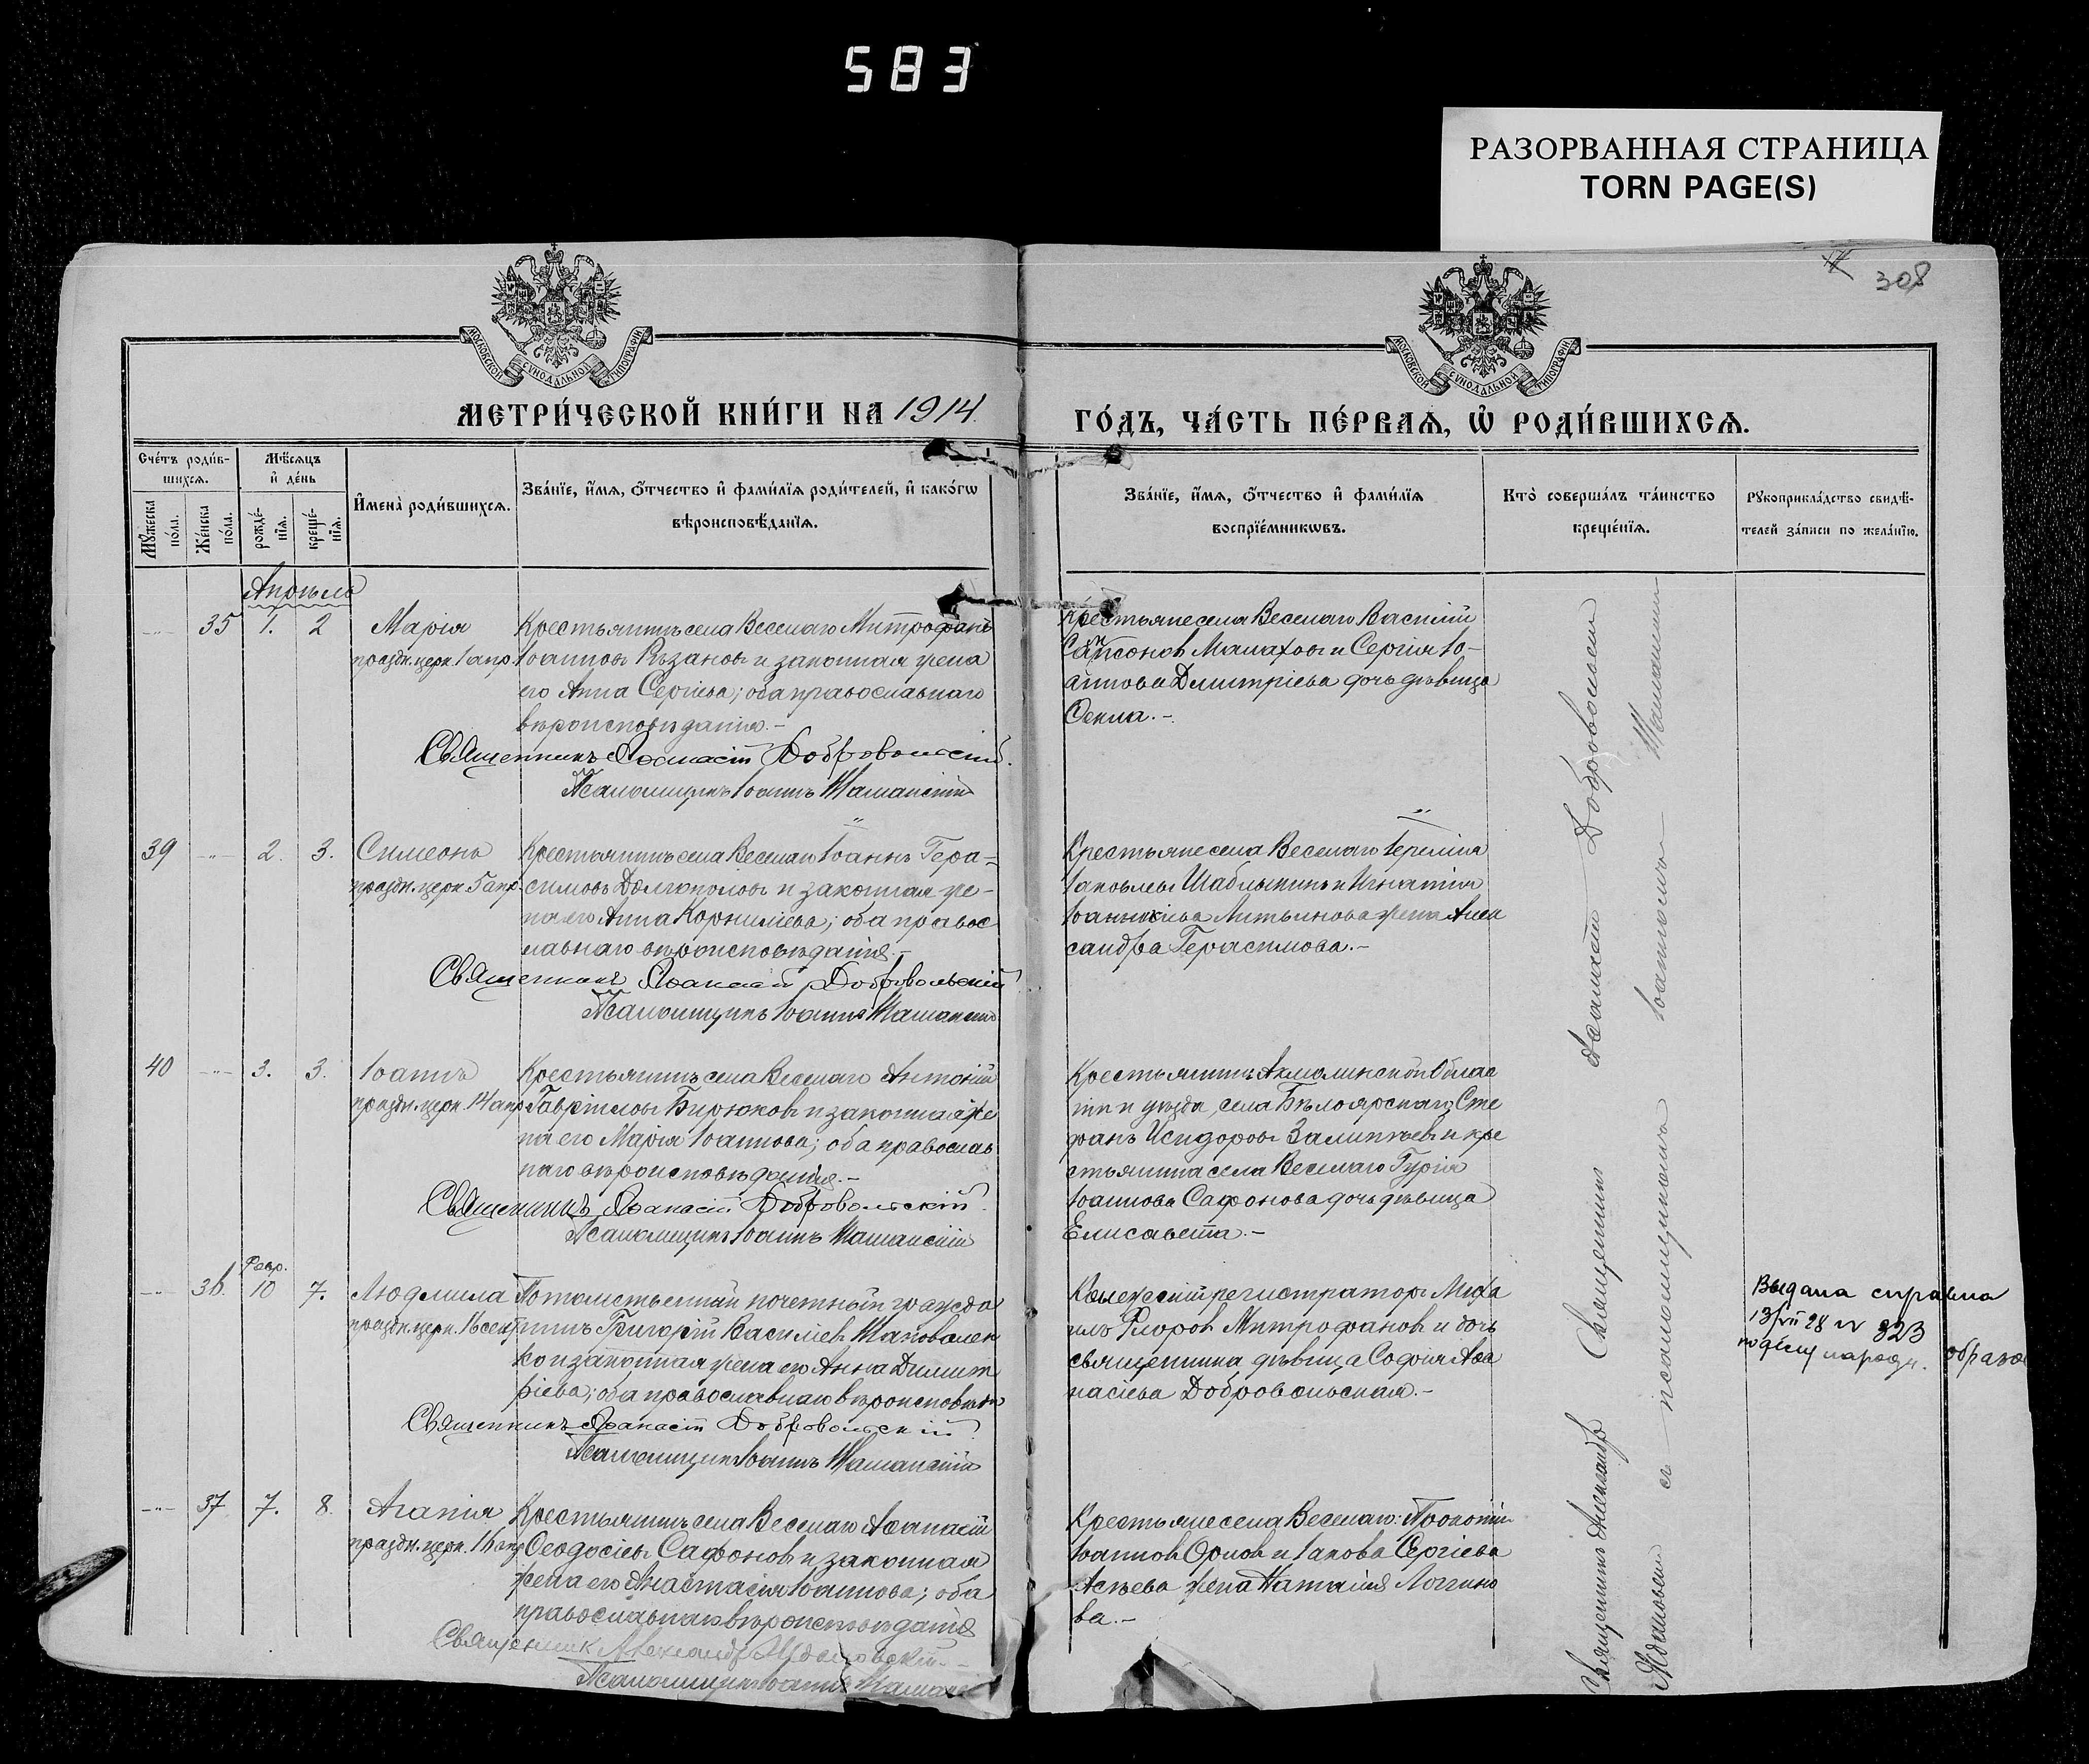 583
РАЗОРВАННАЯ СТРАНИЦА
TORN PAGE(S)
308
МОСКОВСКОЙ СѴНОДАЛЬНОЙ ТИПОГРАФІИ
МОСКОВСКОЙ СѴНОДАЛЬНОЙ ТИПОГРАФІИ
МЕТРИ́ЧЕСКОЙ КНИ́ГИ НА 1914
ГО́ДЪ, ЧА́СТЬ ПЕ́РВАѦ, Ѡ҆ РОДИ́ВШИХСѦ.
Сче́тъ роди́в-
шихсѧ.
Мꙋ́жеска по́ла.
Же́нска по́ла.
Мѣ́сѧцъ
и҆ де́нь
рожде́-
нїѧ.
креще́-
нїѧ.
И҆мена̀ роди́вшихсѧ.
Зва́нїе, и҆́мѧ, ѻ҆́тчество и҆ фами́лїѧ роди́телей, и҆ како́гѡ
вѣроисповѣ́данїѧ.
Зва́нїе, и҆́мѧ, ѻ҆́тчество и҆ фами́лїѧ
воспрїе́мникѡвъ.
Кто̀ соверша́лъ та́инство
креще́нїѧ.
Рꙋкоприкла́дство свидѣ́-
телей за́писи по жела́нїю.
Апрѣль
35 1. 2 Марія
праздн. церк. 1 апр.
Крестьянинъ села Веселаго Митрофанъ
Іоанновъ Рѣзановъ и законная жена
его Анна Сергіева; оба православнаго
вѣроисповѣданія.-
Священникъ Аѳанасій Добровольскій.
Псаломщикъ Іоаннъ
Крестьяне села Веселаго Василій
Сампсоновъ Малаховъ и Сергія Іо-
аннова Дмитріева дочь дѣвица
Ѳекла.-
39 2. 3. Симеонъ
праздн. церк. 5 апр.
Крестьянинъ села Веселаго Іоаннъ Гера-
симовъ Долгополовъ и законная же-
на его Анна Корниліева; оба правос
лавнаго вѣроисповѣданія.-
Священникъ Аѳанасій Добровольскій
Псаломщикъ Іоаннъ
Крестьяне села Веселаго Іеремія
Іаковлевъ Шаблыкинъ и Игнатія
Іоанникіева Литвинова жена Алек
сандра Герасимова.-
40 3. 3. Іоаннъ
праздн. церк. 14 апр.
Крестьянинъ села Веселаго Антоній
Гавріиловъ Бирюковъ и законная же
на его Марія Іоаннова; оба православ
наго вѣроисповѣданія.-
Священникъ Аѳанасій Добровольскій.
Псаломщикъ Іоаннъ
Крестьянинъ Акмолинской Облас
ти и уѣзда, села Бѣлоярскаго, Сте
фанъ Исидоровъ и кре
стьянина села Веселаго Гурія
Іоаннова Сафонова дочь дѣвица
Елисавета.-
36. Февр. 10 7. Людмила
праздн. церк. 16 сент.
Потомственный почетный гражда
нинъ Григорій Василіевъ Шаповален
ко и законная жена его Анна Димит
ріева; оба православнаго вѣроисповѣдан
Священникъ Аѳанасій Добровольскій.
Псаломщикъ Іоаннъ
Коллежскій регистраторъ Миха
илъ Флоровъ Митрофановъ и дочь
священника, дѣвица Софія Аѳа
насіева Добровольская.-
Выдана справка
13/VII 28 N 323
по дѣлу народн. образов
37 7. 8. Агапія
праздн. церк. 16 апр.
Крестьянинъ села Веселаго Аѳанасій
Ѳеодосіевъ Сафоновъ и законная
жена его Анастасія Іоаннова; оба
православнаго вѣроисповѣданія
Священникъ Александръ Ждановскій.-
Псаломщикъ Іоаннъ
Крестьяне села Веселаго: Прокопій
Іоанновъ Орловъ и Іакова Сергіева
Асѣева жена Наталія Логгино
ва.-
Священникъ Аѳанасій Добровольскій
съ псаломщикомъ Іоанномъ
Священникъ Александръ
Ждановскій